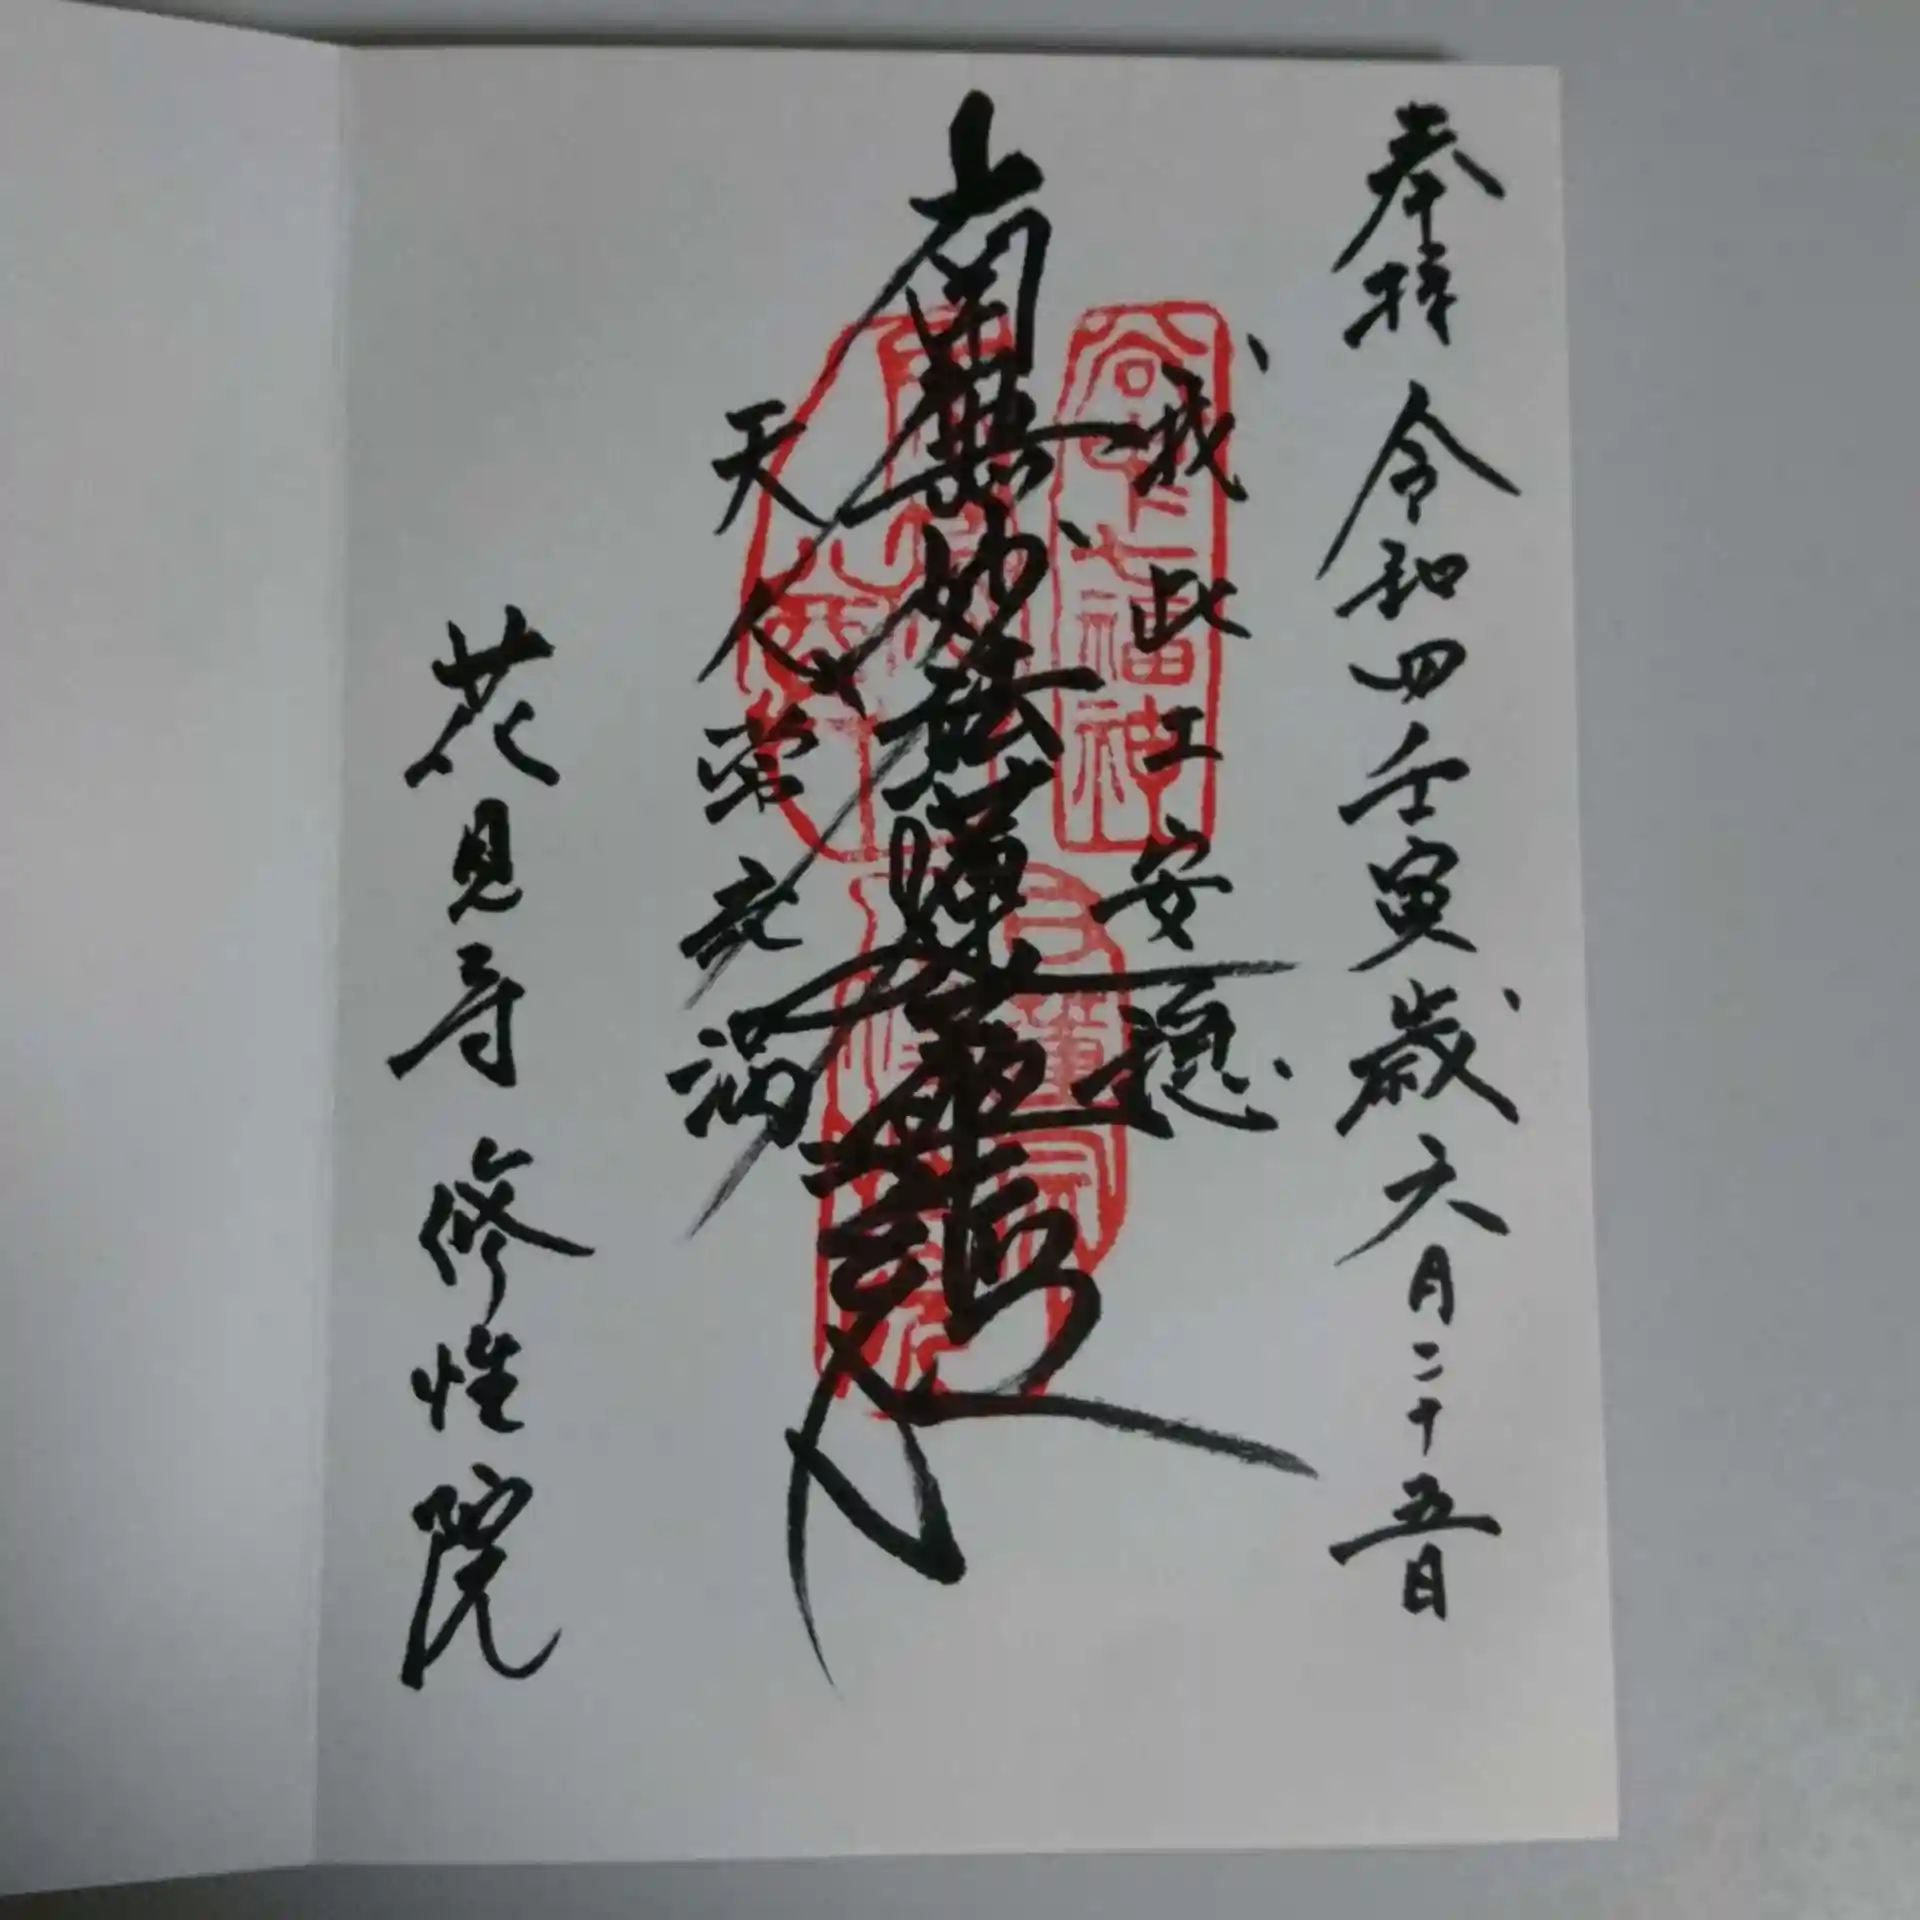 奉拝 令和四壬寅歳六月二十五日
我此土安穏
南無妙法蓮華経
天人常充満
花見寺 修性院
谷中七福神